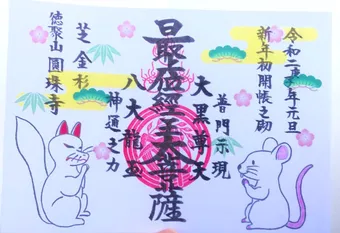 令和二庚子年元旦
新年初開帳之砌
普門示現
大黒尊天
最位經王大菩薩
八大龍王
神通之力
芝金杉
徳聚山圓珠寺